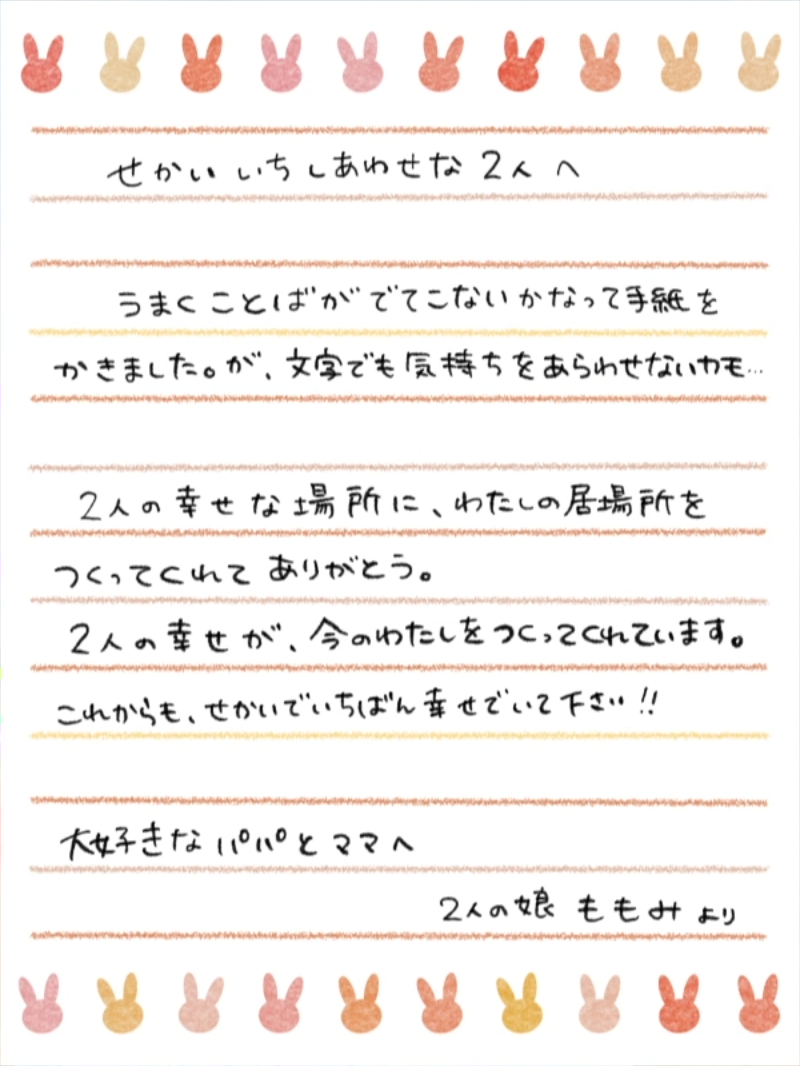 せかいいちしあわせな2人へ
うまくことばがでてこないかなって手紙を
かきました。が、文字でも気持ちをあらわせないカモ…
2人の幸せな場所に、わたしの居場所を
つくってくれてありがとう。
2人の幸せが、今のわたしをつくってくれています。
これからも、せかいでいちばん幸せでいて下さい!!
大好きなパパとママへ
2人の娘 ももみより